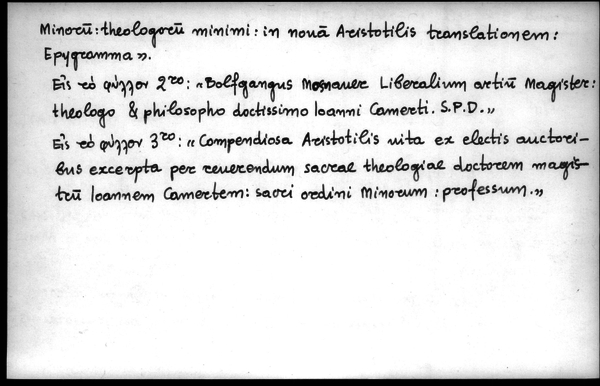 Minorū: theologorū minimi: in nouā Aristotilis translationem:
Epygramma».
Εἰς τὸ φύλλον 2ʳᵒ: «Bolfgangus Mosnauer Liberalium artiū Magister:
theologo & philosopho doctissimo Ioanni Camerti. S.P.D.»
Εἰς τὸ φύλλον 3ʳᵒ: «Compendiosa Aristotilis uita ex electis auctori-
bus excerpta per reuerendum sacrae theologiae doctorem magis-
trū Ioannem Camertem: sacri ordini Minorum: professum.»